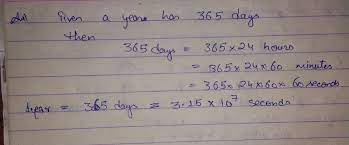 Sol Given a year has 365 days
then
365 days = 365×24 hours
= 365×24×60 minutes
= 365×24×60×60 seconds
1year = 365 days = 3.15 × 10⁷ seconds